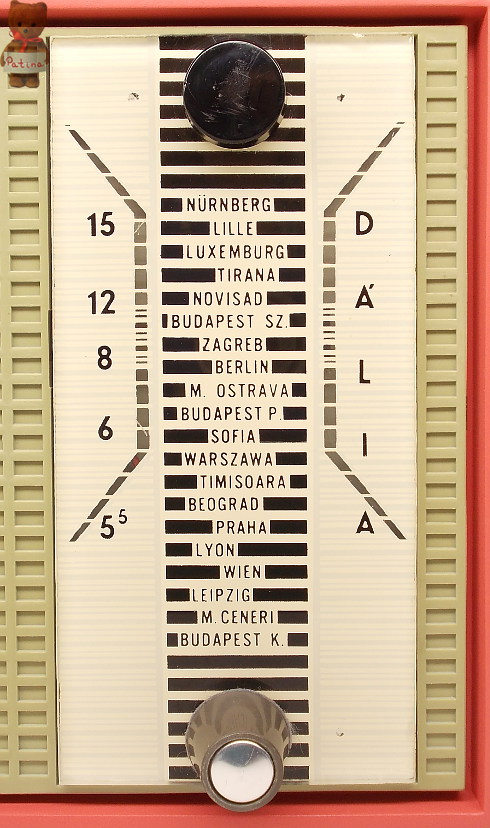 Patina
NÜRNBERG
15
LILLE
D
LUXEMBURG
TIRANA
12
NOVISAD
Á
BUDAPEST SZ.
ZAGREB
8
BERLIN
L
M. OSTRAVA
BUDAPEST P.
6
SOFIA
I
WARSZAWA
TIMISOARA
BEOGRAD
5⁵
PRAHA
A
LYON
WIEN
LEIPZIG
M. CENERI
BUDAPEST K.